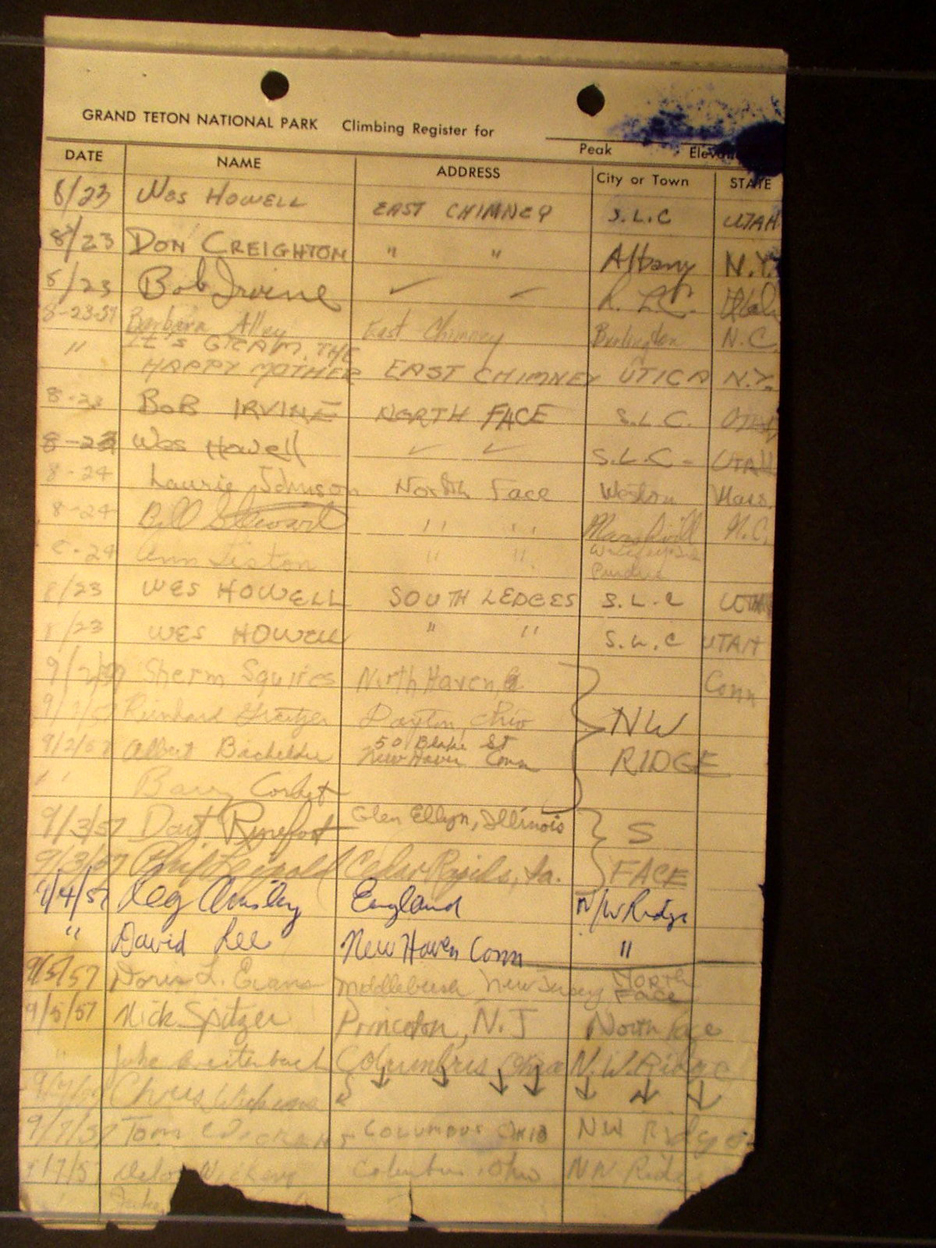 GRAND TETON NATIONAL PARK Climbing Register for
Peak
DATE NAME ADDRESS City or Town STATE
8/23 Wes HOWELL EAST CHIMNEY S.L.C UTAH
8/23 DON CREIGHTON " " Albany N.Y.
8/23 Bob Irvine ✓ ✓ S.L.C. Utah
8-23-57 Barbara Alley East Chimney Burlington N.C.
" IT'S GTCAM, THE
HAPPY MOTHER EAST CHIMNEY UTICA N.Y.
8-23 BOB IRVINE NORTH FACE S.L.C. UTAH
8-23 Wes Howell ✓ ✓ S.L.C- UTAH
8-24 Laurie Johnson North Face Weston Mass.
8-24 Bill Stewart " " N.C.
8-24 Ann " "
8/23 WES HOWELL SOUTH LEDGES S.L.C UTAH
8/23 WES HOWELL " " S.L.C UTAH
9/2/57 Sherm Squires North Haven Conn
9/2/57 Dayton, Ohio NW
9/2/57 Albert Bachelder 50 Blake St
New Haven Conn RIDGE
" Barry Corbet
9/3/57 Glen Ellyn, Illinois S
9/3/57 Cedar Rapids, Ia. FACE
9/4/57 Reg England N/W Ridge
" David Lee New Haven Conn "
9/5/57 Doris L. Evans Middlebush New Jersey NORTH
Face
9/5/57 Nick Spitzer Princeton, N.J North Face
" Jake Breitenbach Columbus Ohio N.W. Ridge
Chris
9/7/57 Tom COLUMBUS OHIO NW Ridge
9/7/57 Columbus Ohio NW Ridge
Jake